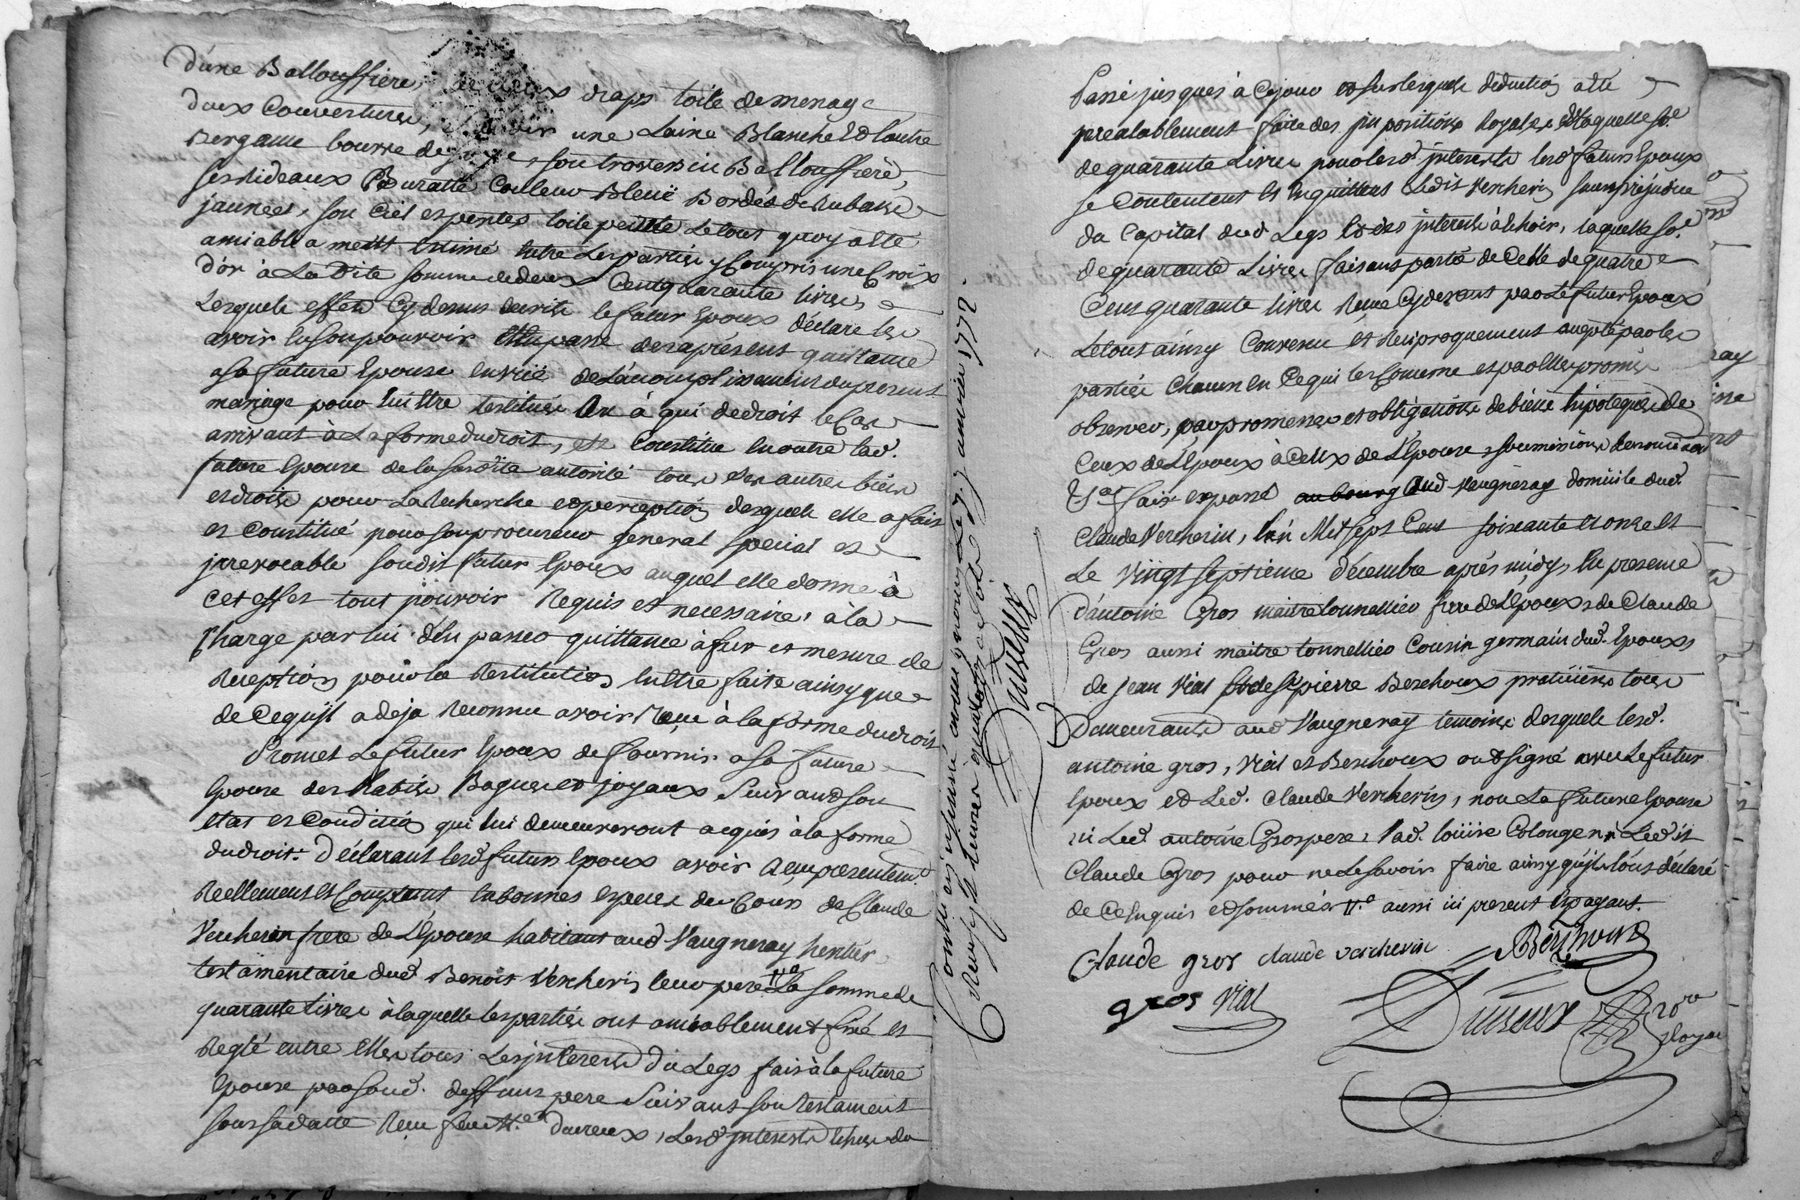 d'une Balloussiere, de deux draps toile de menage
deux Couvertures, une Laine Blanche et l'autre
Bergame bourre de son traversin Balloussiere,
ses Rideaux Buratte Couleur Bleüe Bordés de Rubans
jaunes, son Ciel et pentes toile peinte Le tout quoy a été
amiablement estimé entre Les parties y Compris une Croix
d'or à La dite somme de deux Cent quarante livres,
Lesquels effets Cy dessus decrits le futur Epoux declare les
avoir en son pouvoir et en passe des apresent quittance
a sa future Epouse en vüe de L'acomplissement du present
mariage pour lui etre restitués ou à qui de droit le Cas
arrivant à La forme du droit, et Constitue en outre lad.
future Epouse de la susdite autorité tous ses autres biens
et droits pour La Recherche et perception desquels elle a fait
et Constitué pour son procureur general special et
irrevocable sondit futur Epoux auquel elle donne à
cet effet tout pouvoir Requis et necessaire, à la
Charge par lui d'en passer quittance à fur et mesure de
Reception pour la Restitution en etre faite ainsy que
de Ce qu'il a deja Reconnu avoir Reçu à la forme du droit
Promet Le futur Epoux de fournir a sa future
Epouse des habits Bagues et joyaux Suivant son
etat et Condition qui lui demeureront acquis à la forme
du droit. Déclarant lesd. futurs Epoux avoir Reçu presentemt.
Reellement et Comptant en bonnes especes de Cours de Claude
Vercherin frere de L'Epouse habitant aud Vaugneray heritier
testamentaire dud Benoit Vercherin leur pere La somme de
quarante livres à laquelle les parties ont amiablement fixé et
Reglé entre Elles tous Les interets du Legs fait à la future
Epouse par sond. deffunt pere Suivant son testament
sous sa datte Reçu feu Me. Dureux, Lesd. interets echus du
Controllé en janvier 1772.
Dureux
Passé jusques à Ce jour et sur lesquels deduction a été
prealablement faite des impositions Royales et laquelle so.e
de quarante Livres pour lesd. interets lesd. futurs Epoux
se Contentent et en quittent Ledit Vercherin sans prejudice
du Capital dud. Legs et des interets à echoir, laquelle so.e
de quarante Livres faisant partie de Celle de quatre
Cent quarante livres Reçue Cy devant par Le futur Epoux
Le tout ainsy Convenu et Reciproquement accepté par les
parties Chacun en Ce qui les Concerne et par elles promis
observer, par promesses et obligations de biens hipoteques de
Ceux de L'Epoux à Ceux de L'Epouse, soumissions Renonciaõns
et a. fait et passé au bourg dud Vaugneray domicile dud.
Claude Vercherin, L'an Mil Sept Cent soixante et onze et
Le Vingt septieme décembre après midy, En presence
d'antoine Gros maitre tonnellier frere de L'Epoux, de Claude
Gros aussi maitre tonnellier Cousin germain dud. Epoux,
de jean Vial et de Sr. pierre Berthoux praticiens tous
Demeurants aud Vaugneray temoins desquels lesd.
antoine gros, Vial et Berthoux ont signé avec Le futur
Epoux et Led. Claude Vercherin, non La future Epouse
ni Led. antoine Gros pere, Lad. loüise Colonge ni Ledit
Claude Gros pour ne Le savoir faire ainsy qu'ils l'ont déclaré
de Ce Enquis et sommés aussi ici present Epayant.
Claude gros claude vercherin Berthoux
gros Vial
Dureux
No.re
Royal